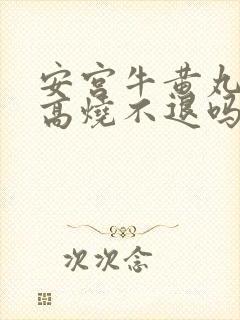 安宫牛黄丸
高燒不退吗
次次念